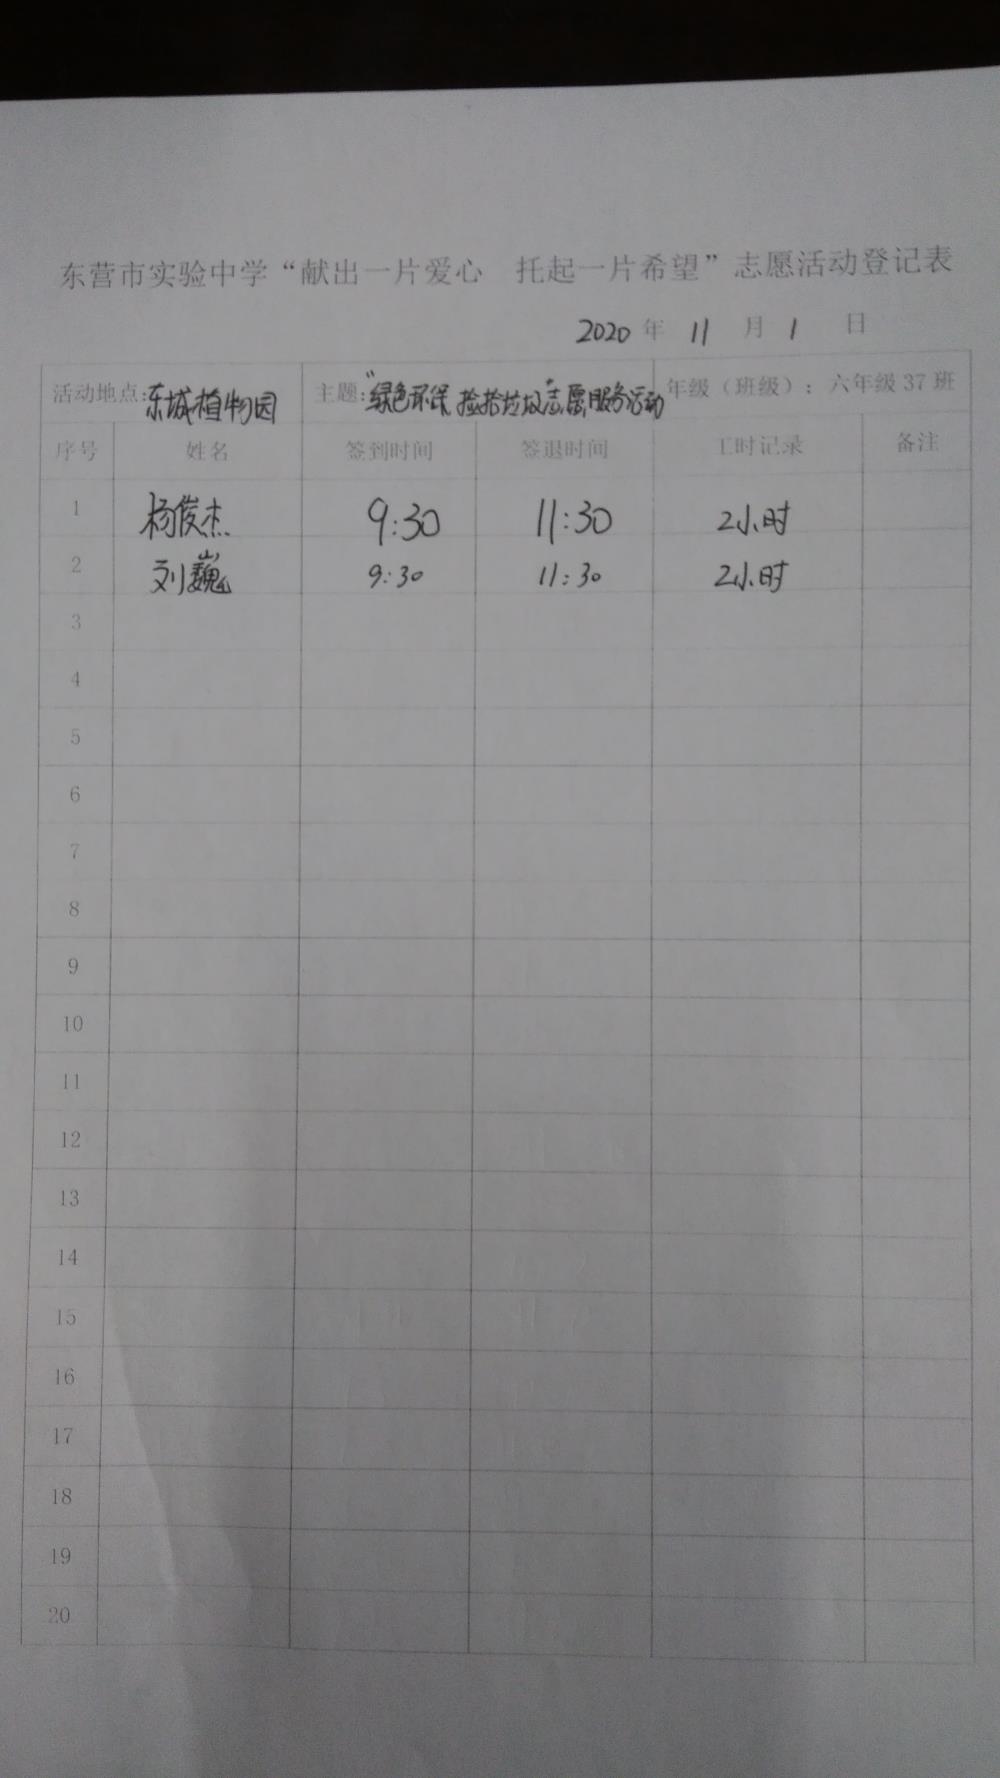 东营市实验中学“献出一片爱心 托起一片希望”志愿活动登记表
2020 年 11 月 1 日
活动地点:东城植物园 主题:“绿色环保 捡拾垃圾”志愿服务活动 年级（班级）：六年级 37 班
序号 姓名 签到时间 签退时间 工时记录 备注
1 杨俊杰 9:30 11:30 2小时
2 刘巍 9:30 11:30 2小时
3
4
5
6
7
8
9
10
11
12
13
14
15
16
17
18
19
20